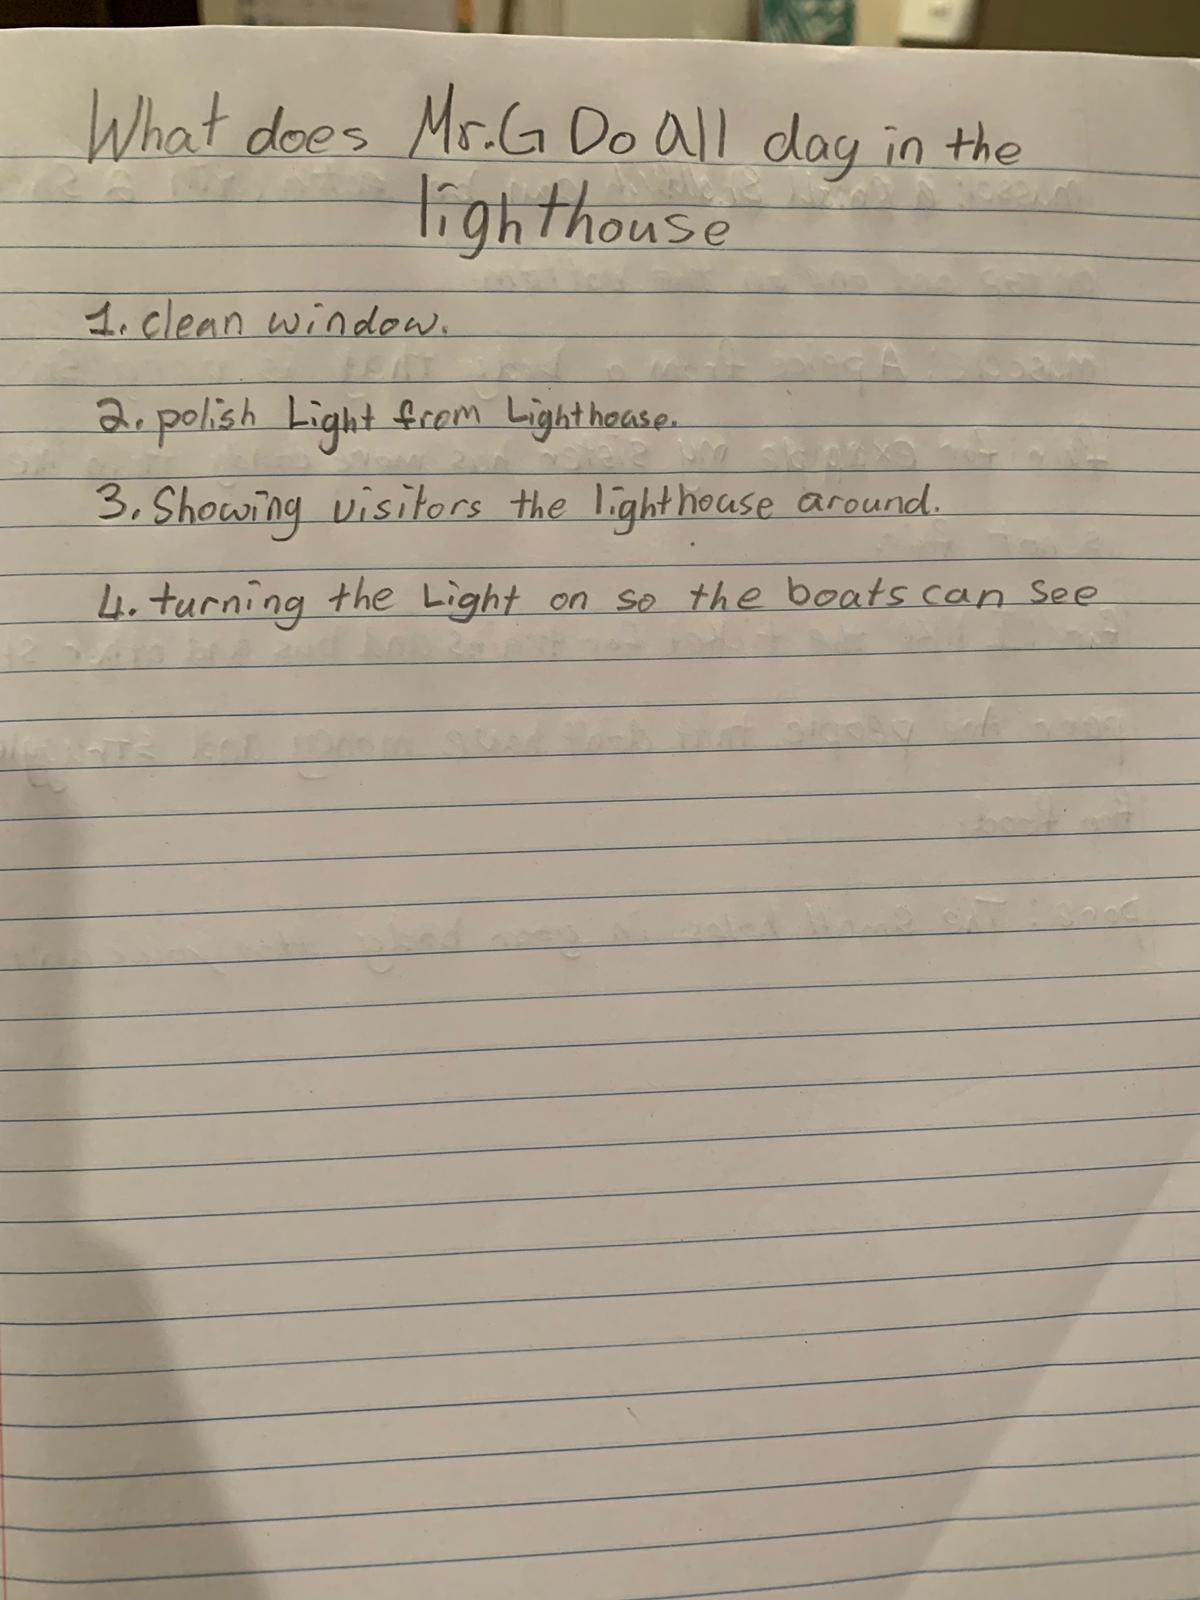 What does Mr.G Do All day in the
lighthouse
1. clean window.
2. polish Light from Lighthouse.
3. Showing visitors the lighthouse around.
4. turning the Light on so the boats can see